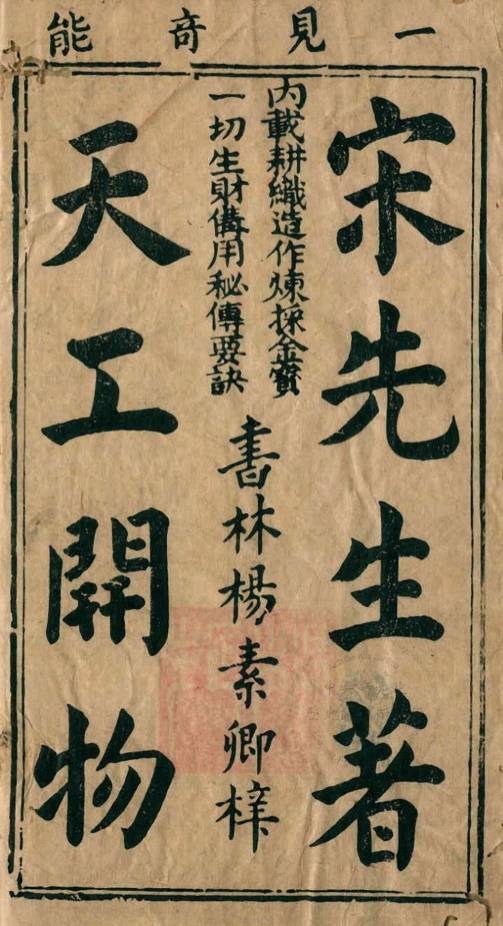 一見奇能
宋先生著
內載耕織造作煉採金寳
一切生財備用秘傳要訣
書林楊素卿梓
天工開物